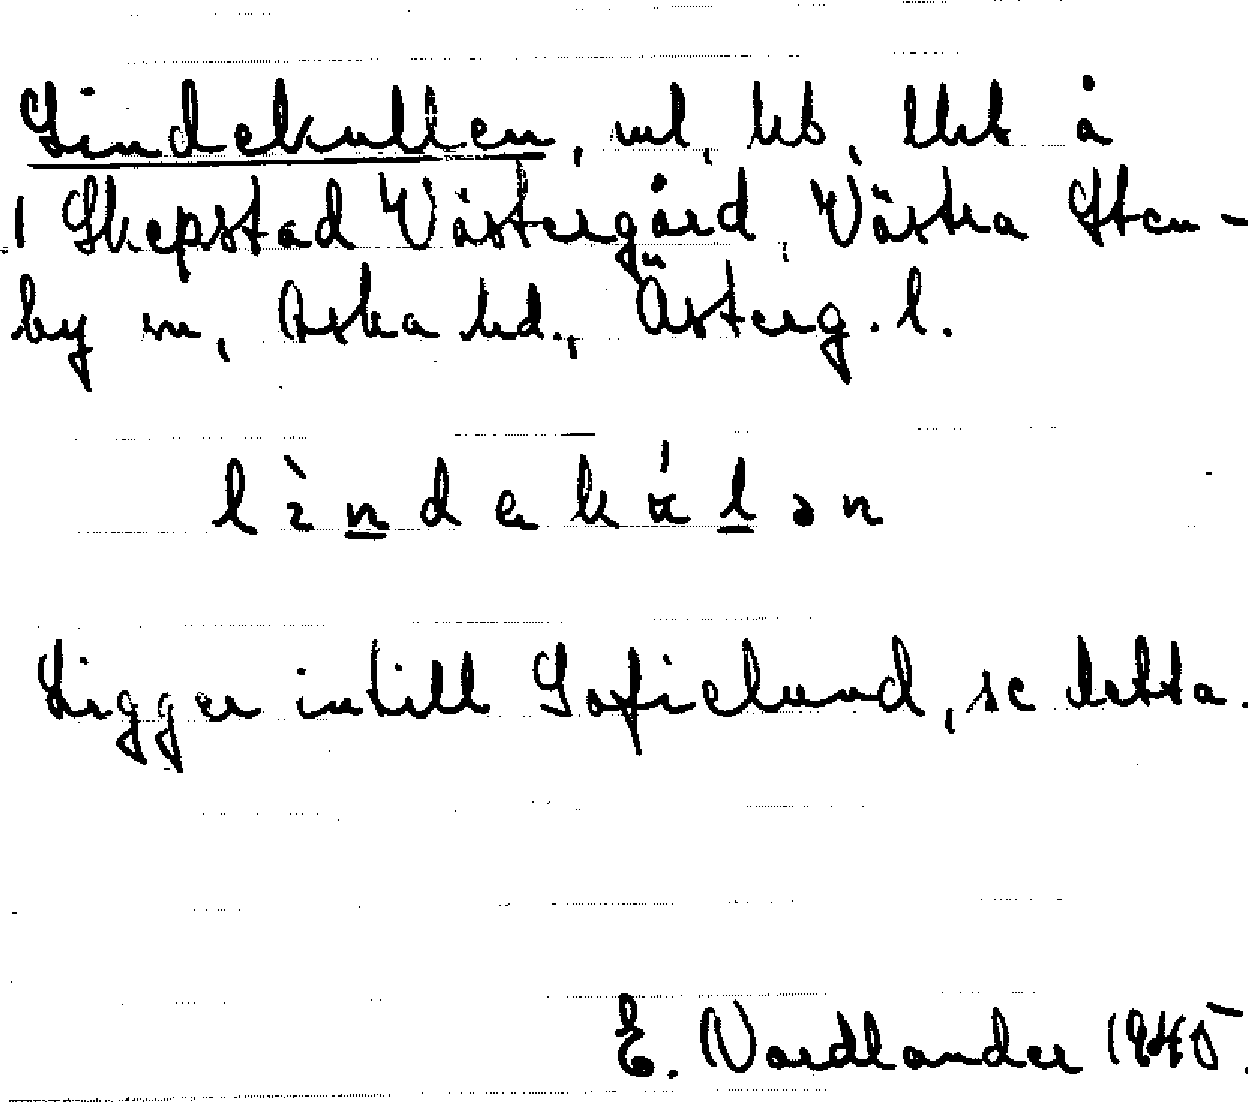 Lindekullen, ml, hb, tht å
1 Skepstad Västergård Västra Sten-
by sn, Aska hd., Österg. l.
lìndəkúlən
Ligger intill Sofielund, se detta.
E. Nordlander 1945.